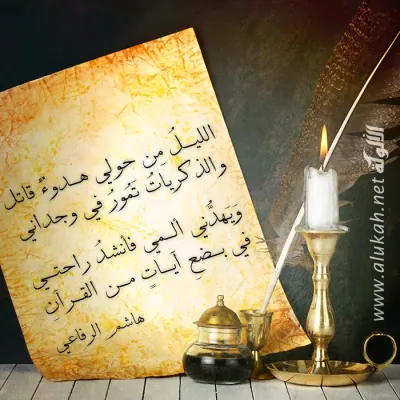 الليلُ مِن حولي هدوءٌ قاتل
والذكرياتُ تَمُورُ في وجداني
وَيَهدُّني ألمي فأنشدُ راحتي
في بضعِ آياتٍ من القرآنِ
هاشم الرفاعي
الألوكة
www.alukah.net